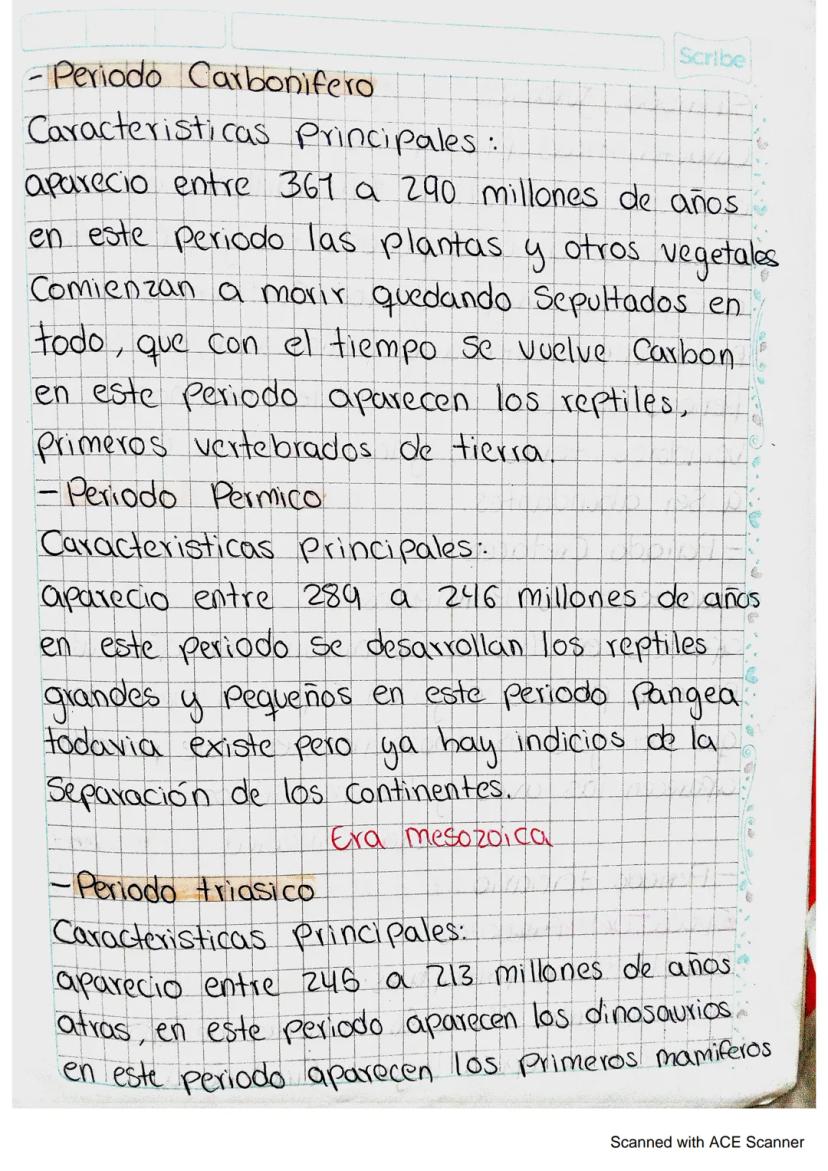 Scribe
- Periodo Carbonifero
Caracteristicas Principales:
aparecio entre 367 a 290 millones de años
en este periodo las plantas y otros vegetales
Comienzan a morir quedando Sepultados en
todo, que con el tiempo se vuelve Carbon
en este periodo aparecen los reptiles,
Primeros vertebrados de tierra.
- Periodo Permico
Caracteristicas Principales:
aparecio entre 289 a 246 millones de años
en este periodo se desarrollan los reptiles
grandes y pequeños en este periodo Pangea
todavia existe pero ya hay indicios de la
Separación de los continentes.
Era mesozoica
- Periodo triasico
Caracteristicas Principales:
aparecio entre 246 a 213 millones de años
atras, en este periodo aparecen los dinosaurios
en este periodo aparecen los Primeros mamiferos
Scanned with ACE Scanner